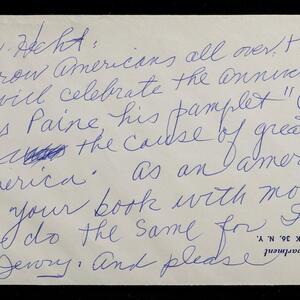 . Hecht:
row Americans all over t
will celebrate the anniv
s Paine his pamplet "
the cause of grea
merica. As an amer
your book with mo
e do the Same for
Jenny. And please
partment
K 36, N. Y.